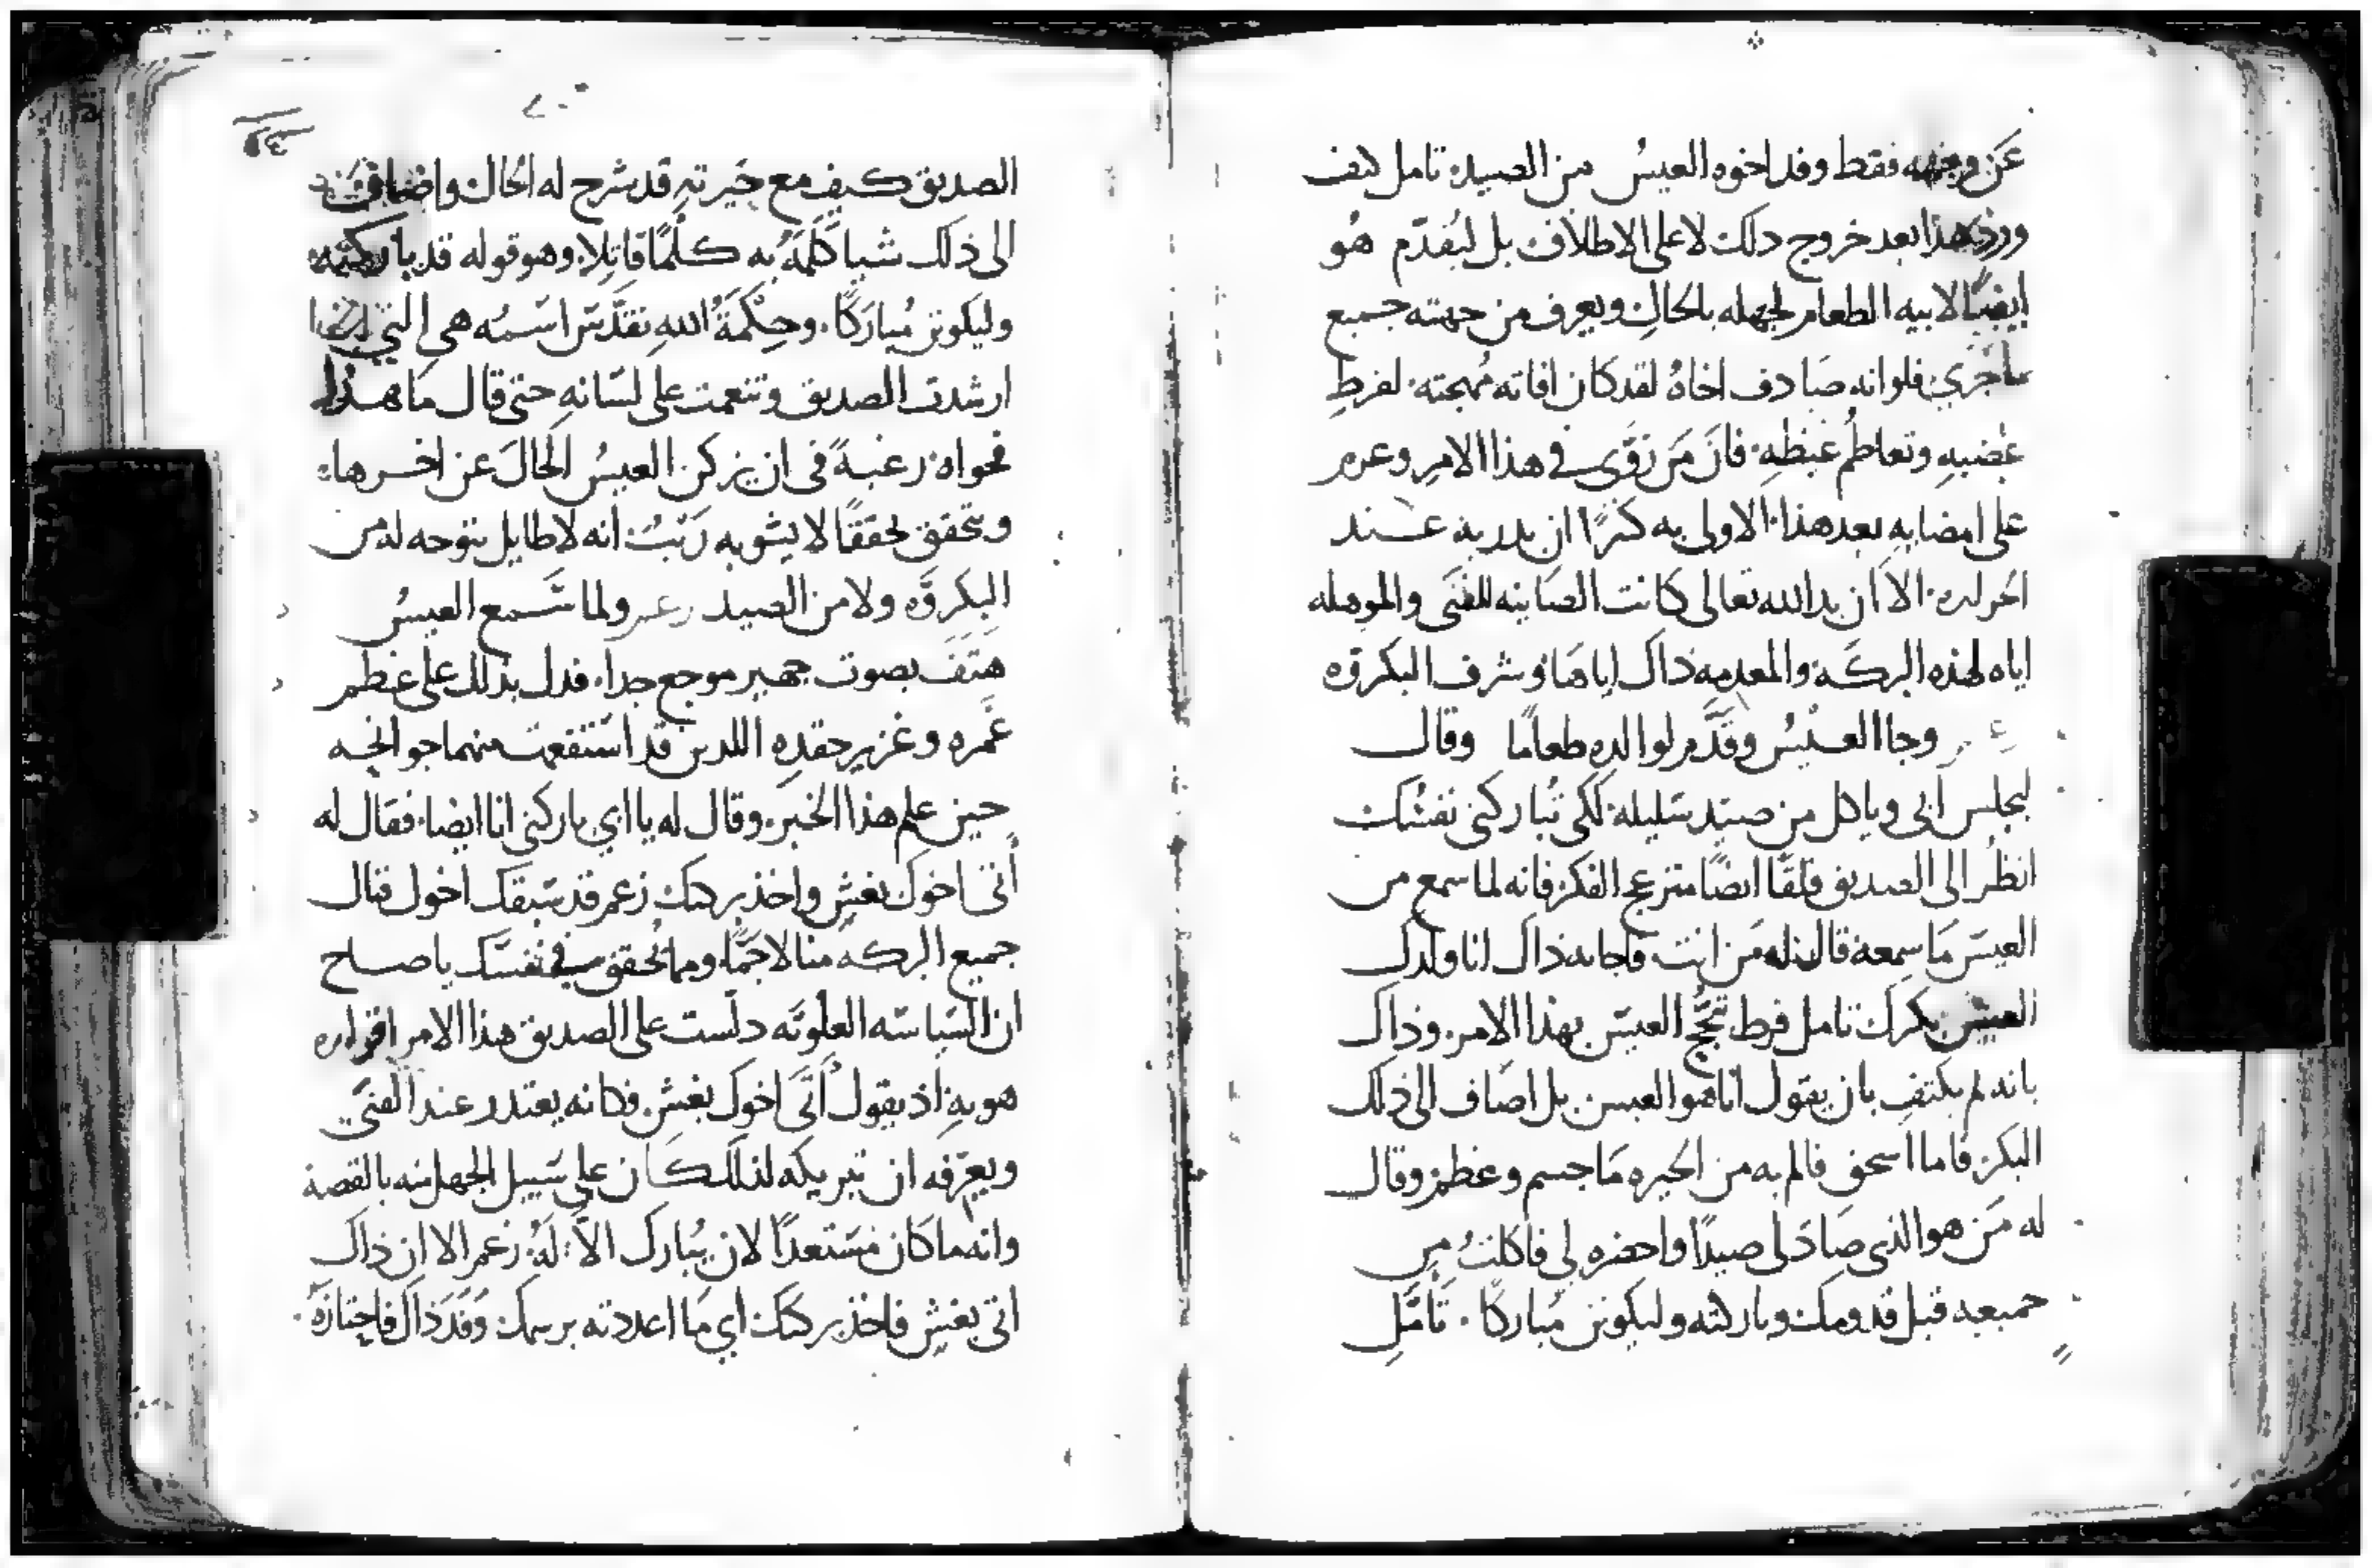 عَن وجهه فقط وقد اخوه العيسُ من الصيد تامل كيف
ورد هذا بعد خروج دلك لا على الاطلاق بل ليُقدّم هُو
ايضًا لابيه الطعام لجهله بالحال ويعرف من جهته جميع
ماجري فلو انه صَادف اخاهُ لقد كان افاته مُهجته لفرطِ
غضبهِ وتعاظُم غيظهِ فانَ مَن نوّى في هذا الامر وعزم
على امضايه بعد هذا الاولى به كثيرًا ان يدريه عند
الا ان يد الله تعالى كانت الصَاينه للفتَى والموهله
اياه لهذه البركَه والمعدمه ذاك اياهَا وشرف البكروّه
وجا العيسُ وقَدَّم لوالده طعامًا وقال
ليجلس ابى وياكل من صيد سَليله لكى تُباركنى نفسُك
انظُر الى الصديق قلقًا ايضًا منزعج الفكر فانه لما سمع من
العيسَ مَا سمعه قال له مَن انت فاجابه ذاك انا ولدك
العيسُ بكرك تامل فرط تحجّج العيسَ بهذا الامر وذاك
بانه لم يكتفِ بان يقول انا هو العيس بل اضَاف الى ذلك
البكر فاما اسحق فالم به من الحيره مَا جسم وعظم وقال
له مَن هو الذى صَادَ لى صيدًا واحضره لي فاكلتُ من
جميعه قبل قدومك وباركته وليكونن مُباركًا تَأمَّل
الصديق كيف مع حَيرتهِ قد شرح له الحال واضَافَ
الى ذلك شيا كَلَّمَهُ به كلْمًا قاتلا وهو قوله قد باركته
وليكونن مُبارَكًا وحِكْمَةُ الله تقدَّسَ اسَمُه هي التي
ارشدت الصديق وتنعمت على لسَانهِ حتى قال مَا هذا
فحواه رغبةً في ان يزكن العيسُ الحالَ عن اخرها
ويتحقق تحققًا لا يشوبه رَيْبُ انه لا طايل يتوجه له من
البكروَّه ولا من الصيد ولما سَمع العيسُ
هَتَفَ بصوت جهير موجع جدا فدل بذلك على عظم
غَمره وغزير حقده اللدين قد اسَتنقعت منهما جوانحه
حين علم هذا الخبر وقال له يا ابي باركنى انا ايضا فقال له
أتى اخوك بغش واخذ بركتك زعم قد سَبقك اخوك فنال
جميع البركه منا لاجمًّا ومما تُحقق في نفسَك ياصاح
ان السَياسَه العلويَه دلّست على الصديق هذا الامر اقراره
هو به اذ يقول أتَى اخوك بغش فكانه يعتدر عند الفتى
ويعرّفه ان تبريكه لذلك كَان على سَبيل الجهل منه بالقصة
وانه ما كَان مسَتعدًا لان يُبارك الاَّ لَهُ زعم الا ان ذاك
اتى بغش فاخذ بركتك أي مَا اعددته برسمك وَفَدَ ذاك فاجتازَهُ